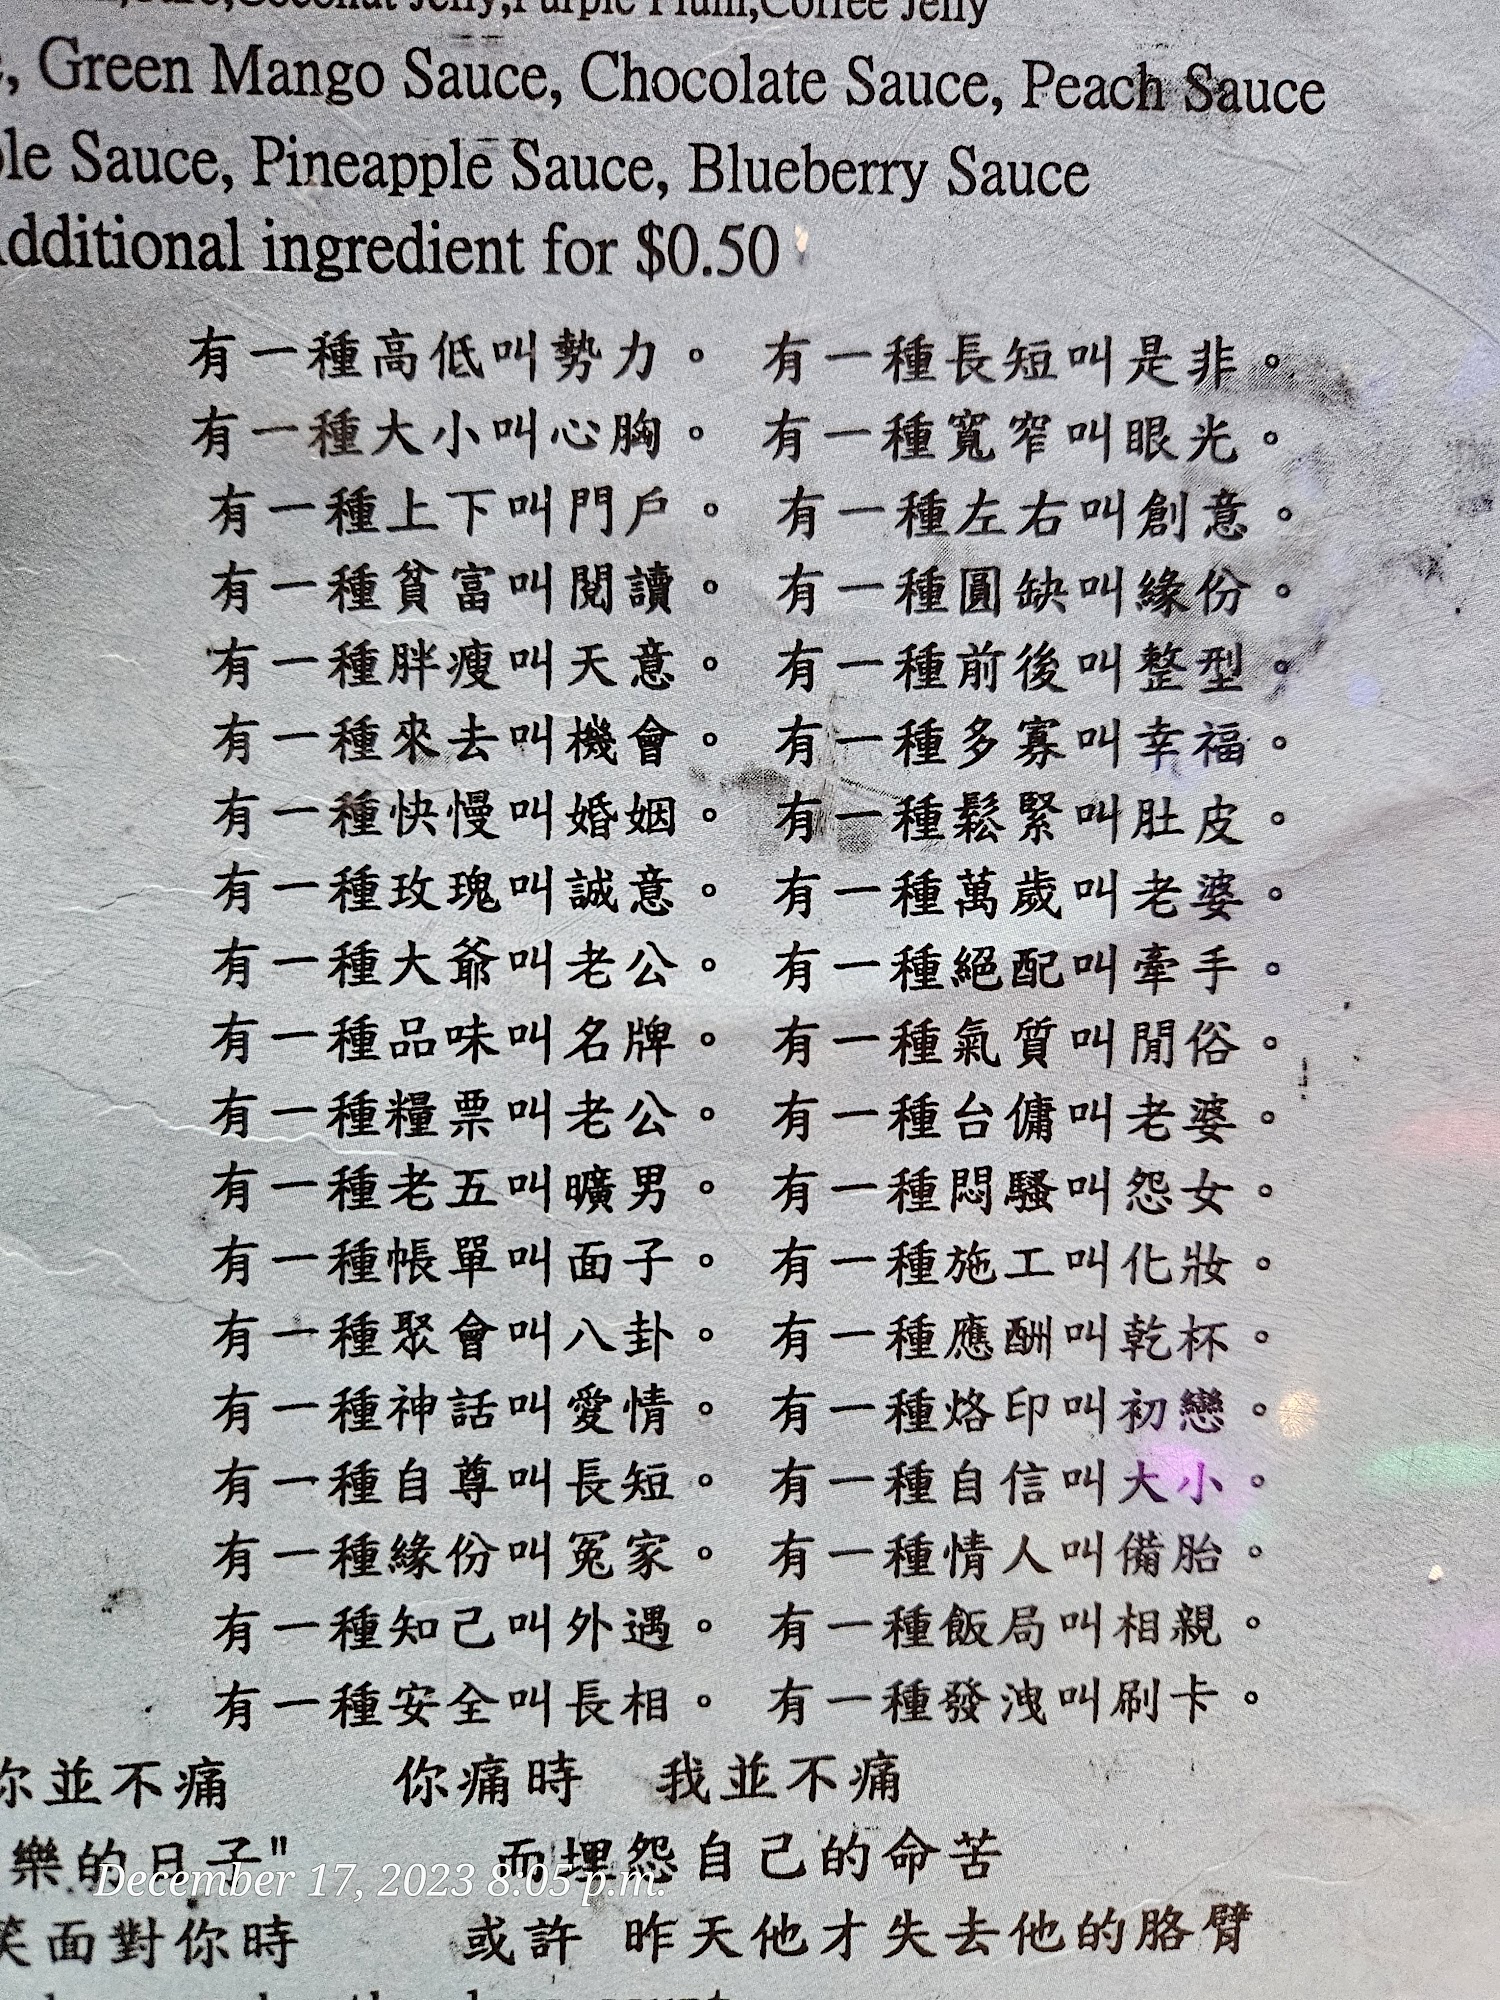 Jelly, Purple Plum, Coffee Jelly
, Green Mango Sauce, Chocolate Sauce, Peach Sauce
le Sauce, Pineapple Sauce, Blueberry Sauce
dditional ingredient for $0.50
有一種高低叫勢力。 有一種長短叫是非。
有一種大小叫心胸。 有一種寬窄叫眼光。
有一種上下叫門戶。 有一種左右叫創意。
有一種貧富叫閱讀。 有一種圓缺叫緣份。
有一種胖瘦叫天意。 有一種前後叫整型。
有一種來去叫機會。 有一種多寡叫幸福。
有一種快慢叫婚姻。 有一種鬆緊叫肚皮。
有一種玫瑰叫誠意。 有一種萬歲叫老婆。
有一種大爺叫老公。 有一種絕配叫牽手。
有一種品味叫名牌。 有一種氣質叫閒俗。
有一種糧票叫老公。 有一種台傭叫老婆。
有一種老五叫曠男。 有一種悶騷叫怨女。
有一種帳單叫面子。 有一種施工叫化妝。
有一種聚會叫八卦。 有一種應酬叫乾杯。
有一種神話叫愛情。 有一種烙印叫初戀。
有一種自尊叫長短。 有一種自信叫大小。
有一種緣份叫冤家。 有一種情人叫備胎。
有一種知己叫外遇。 有一種飯局叫相親。
有一種安全叫長相。 有一種發洩叫刷卡。
你並不痛 你痛時 我並不痛
樂的日子" 而埋怨自己的命苦
December 17, 2023 8:05 p.m.
笑面對你時 或許 昨天他才失去他的胳臂